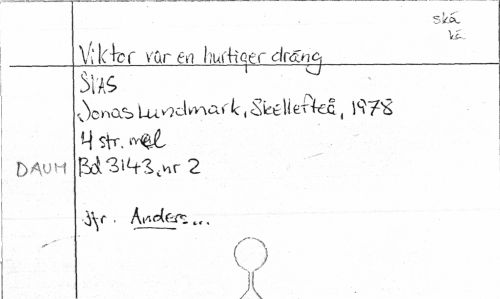 skä
kä
Viktor vär en hurtiger dräng
SVAS
Jonas Lundmark, Skellefteå, 1978
4 str. mel
DAUM Bd 3143, nr 2
Jfr. Anders...